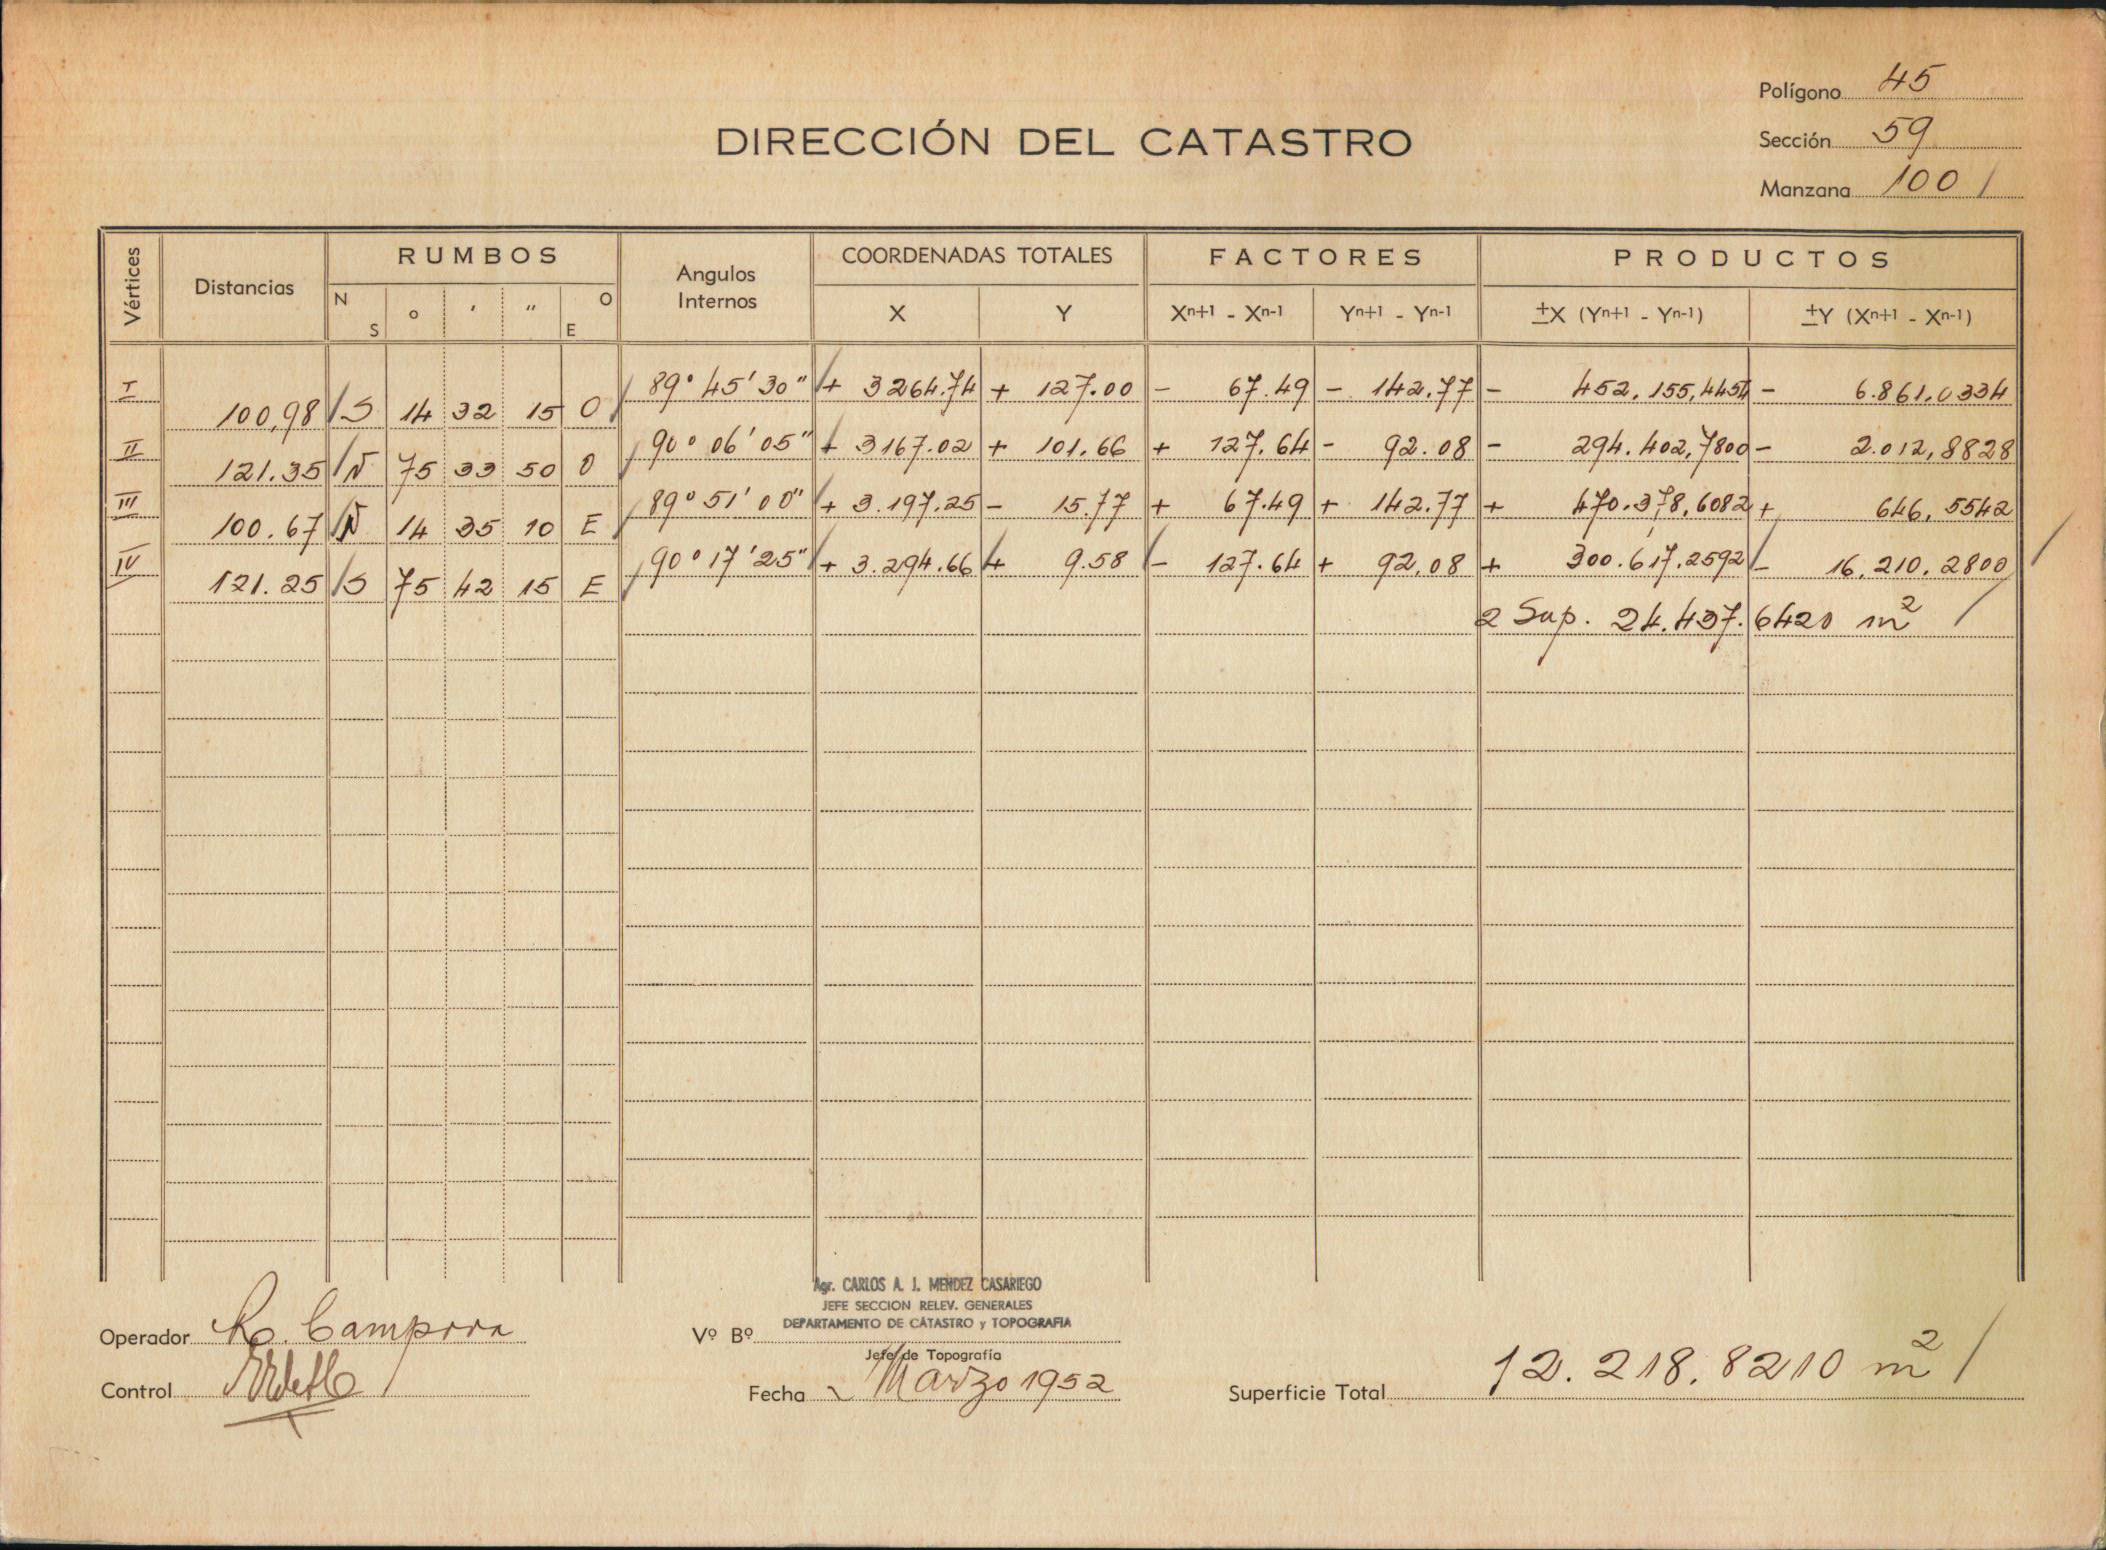 Polígono 45
DIRECCIÓN DEL CATASTRO
Sección 59
Manzana 100
Vértices Distancias RUMBOS Angulos Internos COORDENADAS TOTALES FACTORES PRODUCTOS
N S ° ' " O E X Y Xn+1 - Xn-1 Yn+1 - Yn-1 ±X (Yn+1 - Yn-1) ±Y (Xn+1 - Xn-1)
I 89° 45' 30" + 3264.74 + 127.00 - 67.49 - 142.77 - 452.155,4454 - 6.861.0334
100,98 S 14 32 15 O
II 90° 06' 05" + 3167.02 + 101.66 + 127.64 - 92.08 - 294.402,7800 - 2.012,8828
121.35 N 75 33 50 O
III 89° 51' 00" + 3.197.25 - 15.77 + 67.49 + 142.77 + 470.378,6082 + 646,5542
100.67 N 14 35 10 E
IV 90° 17' 25" + 3.294.66 + 9.58 - 127.64 + 92,08 + 300.617.2592 - 16.210.2800
121.25 S 75 42 15 E
2 Sup. 24.437.6420 m²
Agr. CARLOS A. J. MENDEZ CASARIEGO
JEFE SECCION RELEV. GENERALES
DEPARTAMENTO DE CATASTRO y TOPOGRAFIA
Operador Campora
Vº Bº
Jefe de Topografía
Control
Fecha Marzo 1952
Superficie Total 12.218.8210 m²